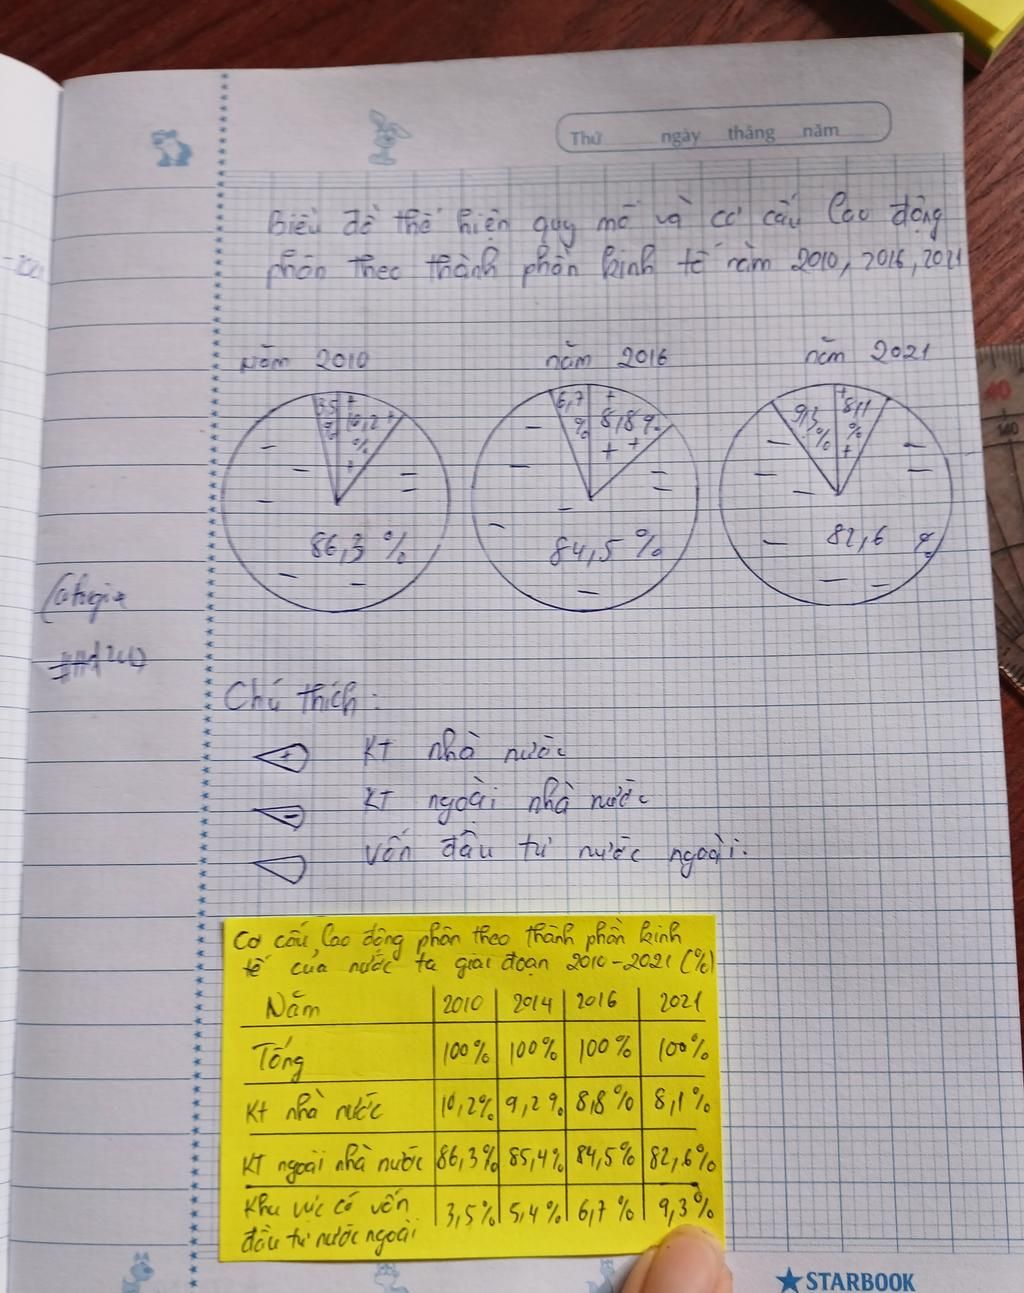 Thứ ngày tháng năm
Biểu đồ thể hiện quy mô và cơ cấu lao động
phân theo thành phần kinh tế năm 2010, 2016, 2021
Năm 2010 năm 2016 năm 2021
3,5 % + 10,2 % + +
6,7 % + 8,8 % + +
9,3 % + 8,1 % +
86,3 % 84,5 % 82,6 %
Chú thích:
+ KT nhà nước
- KT ngoài nhà nước
vốn đầu tư nước ngoài.
Cơ cấu lao động phân theo thành phần kinh
tế của nước ta giai đoạn 2010-2021 (%)
Năm 2010 2014 2016 2021
Tổng 100% 100% 100% 100%
Kt nhà nước 10,2% 9,2% 8,8% 8,1%
KT ngoài nhà nước 86,3% 85,4% 84,5% 82,6%
Khu vực có vốn 3,5% 5,4% 6,7% 9,3%
đầu tư nước ngoài
STARBOOK